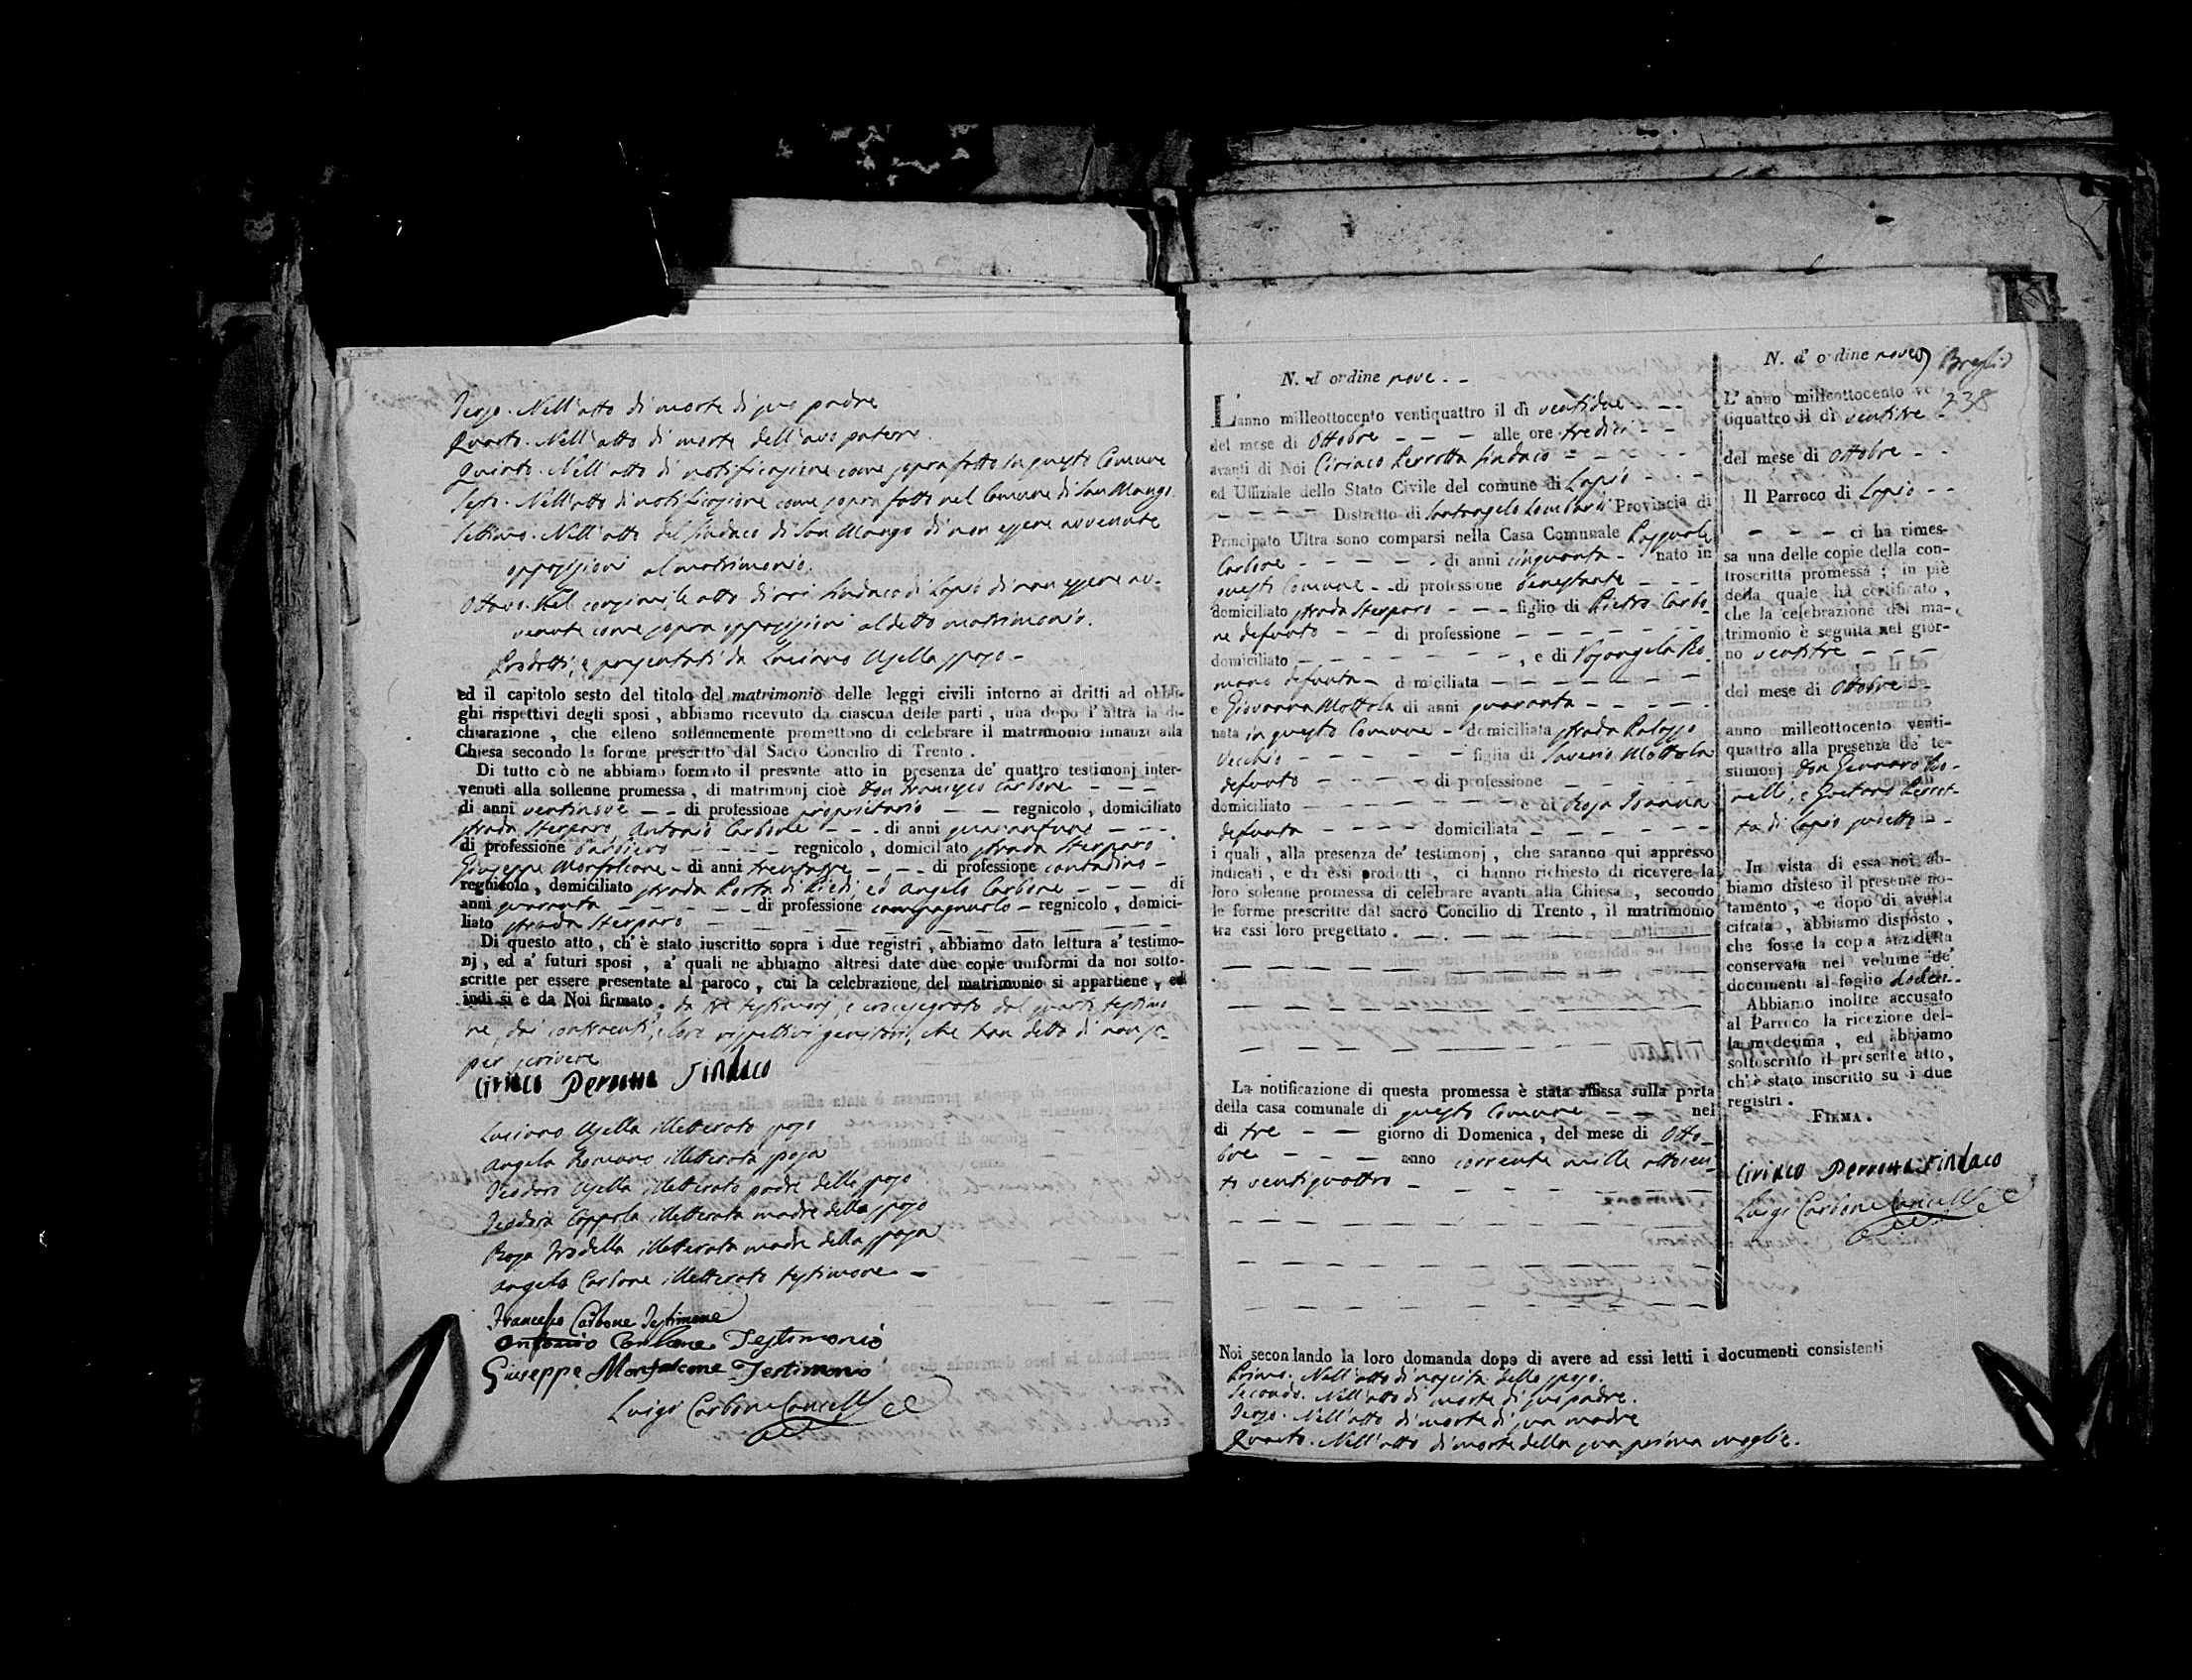 Terzo. Nell'atto di morte di suo padre
Quarto. Nell'atto di morte dell'avo paterno.
Quinto. Nell'atto di notificazione come sopra fatto in questo Comune
Sesto. Nell'atto di notificazione come sopra fatto nel Comune di San Mango.
Settimo. Nell'atto del Sindaco di San Mango di non essere avvenute
opposizioni al matrimonio.
Ottavo. Nel consimile atto di noi Sindaco di Lapio di non essere av-
venute come sopra opposizioni al detto matrimonio.
Prodotti, e presentati da Luciano Ajella sposo -
ed il capitolo sesto del titolo del matrimonio delle leggi civili intorno ai dritti ad obbli-
ghi rispettivi degli sposi, abbiamo ricevuto da ciascuna delle parti, una dopo l'altra la di-
chiarazione, che elleno sollennemente promettono di celebrare il matrimonio innanzi alla
Chiesa secondo le forme prescritto dal Sacro Concilio di Trento.
Di tutto ciò ne abbiamo formato il presente atto in presenza de' quattro testimonj inter-
venuti alla sollenne promessa, di matrimonj cioè Don Francesco Carbone - - -
di anni ventinove - - di professione proprietario - - regnicolo, domiciliato
strada Sterparo, Antonio Carbone - - - di anni quarantuno - - -
di professione Barbiero - - - - - regnicolo, domiciliato strada Sterparo.
Giuseppe Monfalcone - di anni trentatre - - - di professione contadino -
regnicolo, domiciliato strada Porta di Piedi, ed Angelo Carbone - - - di
anni quaranta - - - - - di professione campagnuolo - regnicolo, domici-
liato strada Sterparo - - - - - - - - - -
Di questo atto, ch'è stato iuscritto sopra i due registri, abbiamo dato lettura a' testimo-
nj, ed a' futuri sposi, a' quali ne abbiamo altresi date due copie uniformi da noi sotto-
scritte per essere presentate al paroco, cui la celebrazione del matrimonio si appartiene, ed
indi si è da Noi firmato, da tre testimonj, e crocesegnato dal quarto testimo
ne, dai contraenti, e loro rispettivi genitori, che han detto di non sa-
per scrivere
Ciriaco Perrotta Sindaco
Luciano Ajella illetterato sposo
Angela Romano illetterata sposa
Teodoro Ajella illetterato padre dello sposo
Teodora Coppola illetterata madre dello sposo
Rosa Trodella illetterata madre della sposa
Angelo Carbone illetterato testimone -
Francesco Carbone Testimone
Antonio Carbone Testimonio
Giuseppe Monfalcone Testimonio
Luigi Carbone Cancell.e
N. d'ordine nove. - -
L'anno milleottocento ventiquattro il dì ventidue - - -
del mese di Ottobre - - - alle ore tredici - -
avanti di Noi Ciriaco Perrotta Sindaco - - - - -
ed Uffiziale dello Stato Civile del comune di Lapio - - -
- - - - Distretto di Santangelo Lombardi Provincia di
Principato Ultra sono comparsi nella Casa Comunale Pasquale
Carbone - - - - - - di anni cinquanta - nato in
questo Comune - - di professione benestante - - -
domiciliato strada Sterparo - - - figlio di Pietro Carbo-
ne defunto - - di professione - - - - - -
domiciliato - - - - - - - , e di Vosangela Ro
mano defunta - domiciliata - - - - - - -
e Giovanna Mottola di anni quaranta - - - -
nata in questo Comune - domiciliata strada Palazzo
Vecchio - - - - - - figlia di Saverio Mottola
defunto - - - - - di professione - - - - -
domiciliato - - - - - - - e di Rosa Joanna
defunta - - - - - domiciliata - - - - - -
i quali, alla presenza de' testimonj, che saranno qui appresso
indicati, e da essi prodotti, ci hanno richiesto di ricevere la
loro solenne promessa di celebrare avanti alla Chiesa, secondo
le forme prescritte dal sacro Concilio di Trento, il matrimonio
tra essi loro pregettato. - - - - - - - -
La notificazione di questa promessa è stata affissa sulla porta
della casa comunale di questo Comune - - nel
di tre - - giorno di Domenica, del mese di Otto-
bre - - - - anno corrente mille ottocen-
to ventiquattro - - - - - - - -
Noi secondando la loro domanda dopo di avere ad essi letti i documenti consistenti
Primo. Nell'atto di nascita dello sposo.
Secondo. Nell'atto di morte di suo padre.
Terzo. Nell'atto di morte di sua madre
Quarto. Nell'atto di morte della sua prima moglie.
N. d'ordine nove
238
L'anno milleottocento ven
tiquattro il dì ventitre -
del mese di Ottobre - -
Il Parroco di Lapio - -
- - - ci ha rimes-
sa una delle copie della con-
troscritta promessa; in piè
della quale ha certificato,
che la celebrazione del ma-
trimonio è seguita nel gior-
no ventitre - - -
del mese di Ottobre - -
anno milleottocento venti-
quattro alla presenza de' te-
stimonj Don Gennaro
e Gaetano Perrot-
ta di Lapio sudetto - -
In vista di essa noi ab-
biamo disteso il presente no-
tamento, e dopo di averla
cifrata, abbiamo disposto,
che fosse la copia anzidetta
conservata nel volume de'
documenti al foglio dodeci - -
Abbiamo inoltre accusato
al Parroco la ricezione del-
la medesima, ed abbiamo
sottoscritto il presente atto,
ch'è stato inscritto su i due
registri.
FIRMA.
Ciriaco Perrotta Sindaco
Luigi Carbone Cancell.e